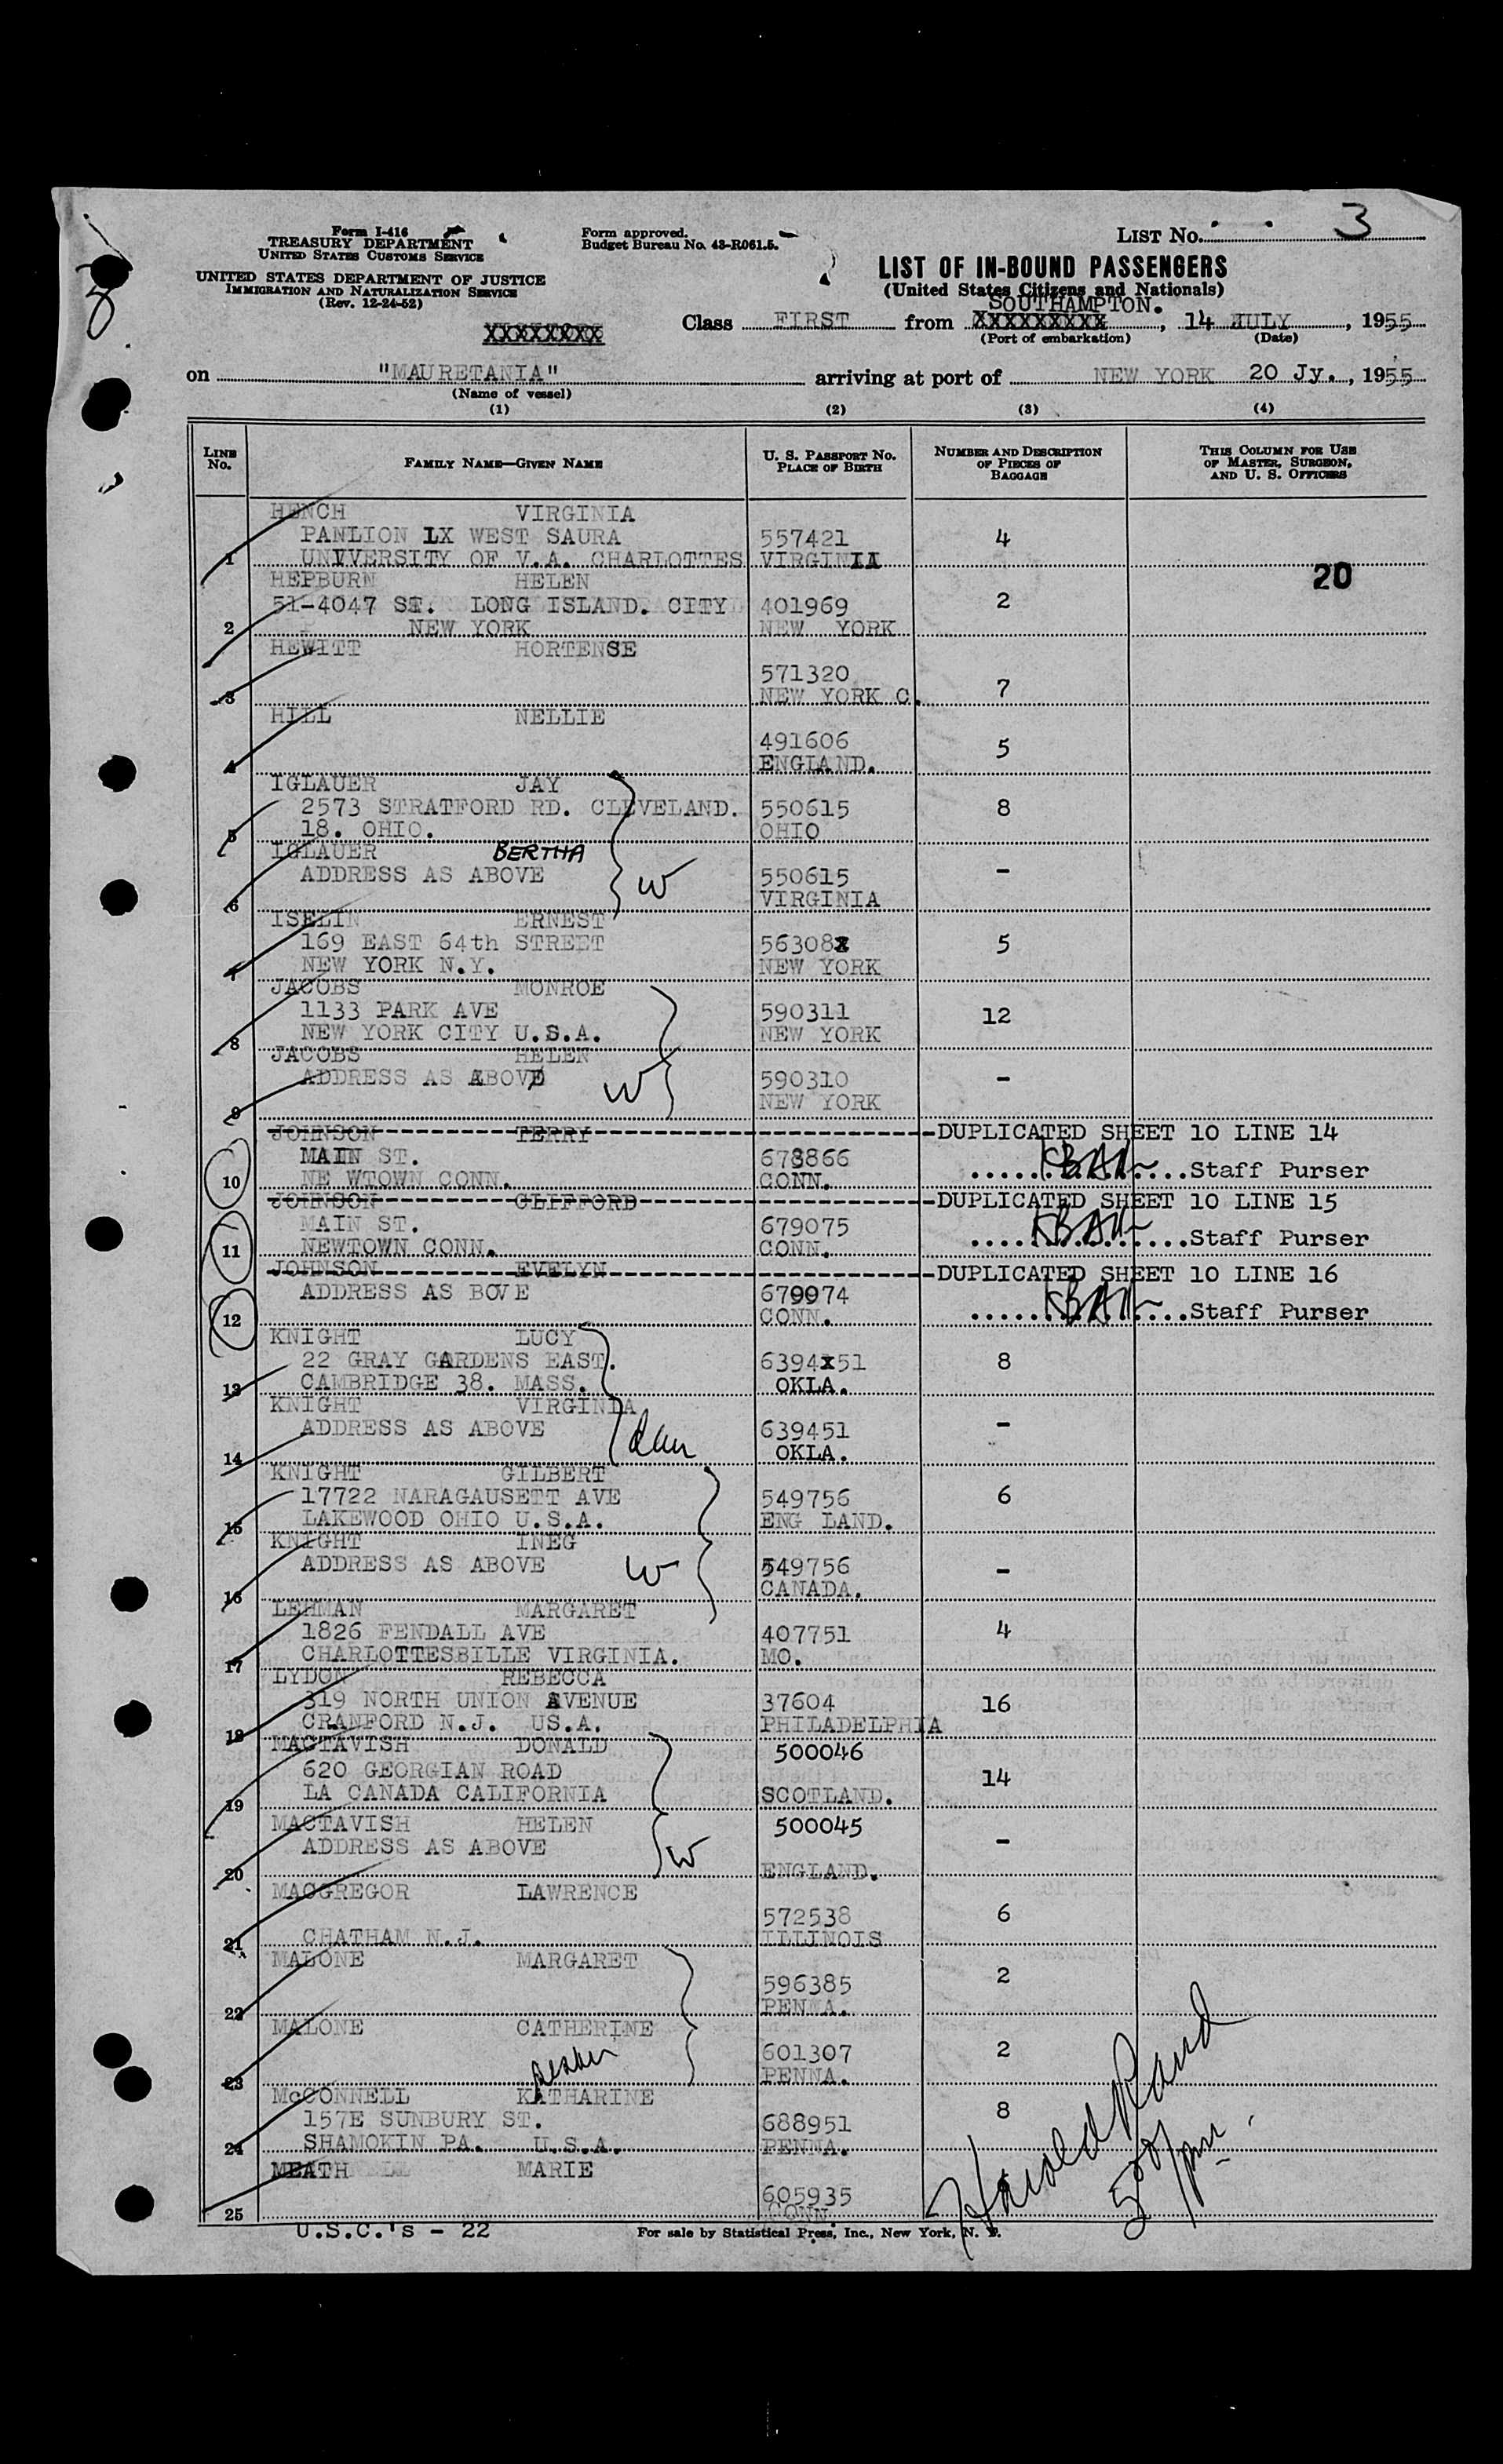 3
Form I-416
TREASURY DEPARTMENT
UNITED STATES CUSTOMS SERVICE
UNITED STATES DEPARTMENT OF JUSTICE
IMMIGRATION AND NATURALIZATION SERVICE
(Rev. 12-24-52)
Form approved.
Budget Bureau No. 43-R061.5.
LIST No. 3
LIST OF IN-BOUND PASSENGERS
(United States Citizens and Nationals)
SOUTHAMPTON.
XXXXXXXX Class FIRST from XXXXXXXXX, 14 JULY, 1955
(Port of embarkation) (Date)
on "MAURETANIA" arriving at port of NEW YORK 20 Jy., 1955
(Name of vessel)
(1) (2) (3) (4)
LINE No. FAMILY NAME—GIVEN NAME U. S. PASSPORT No. PLACE OF BIRTH NUMBER AND DESCRIPTION OF PIECES OF BAGGAGE THIS COLUMN FOR USE OF MASTER, SURGEON, AND U. S. OFFICERS
HENCH VIRGINIA
PANLION LX WEST SAURA 557421 4
1 UNIVERSITY OF V.A. CHARLOTTES VIRGINIA
HEPBURN HELEN 20
51-4047 ST. LONG ISLAND. CITY 401969 2
2 NEW YORK NEW YORK
HEWITT HORTENSE
571320
3 NEW YORK C. 7
HILL NELLIE
491606 5
4 ENGLAND.
IGLAUER JAY
2573 STRATFORD RD. CLEVELAND. 550615 8
5 18. OHIO. OHIO
IGLAUER BERTHA
ADDRESS AS ABOVE W 550615 -
6 VIRGINIA
ISELIN ERNEST
169 EAST 64th STREET 56308X 5
7 NEW YORK N.Y. NEW YORK
JACOBS MONROE
1133 PARK AVE 590311 12
8 NEW YORK CITY U.S.A. NEW YORK
JACOBS HELEN
ADDRESS AS ABOVE W 590310 -
9 NEW YORK
JOHNSON TERRY DUPLICATED SHEET 10 LINE 14
MAIN ST. 678866 Staff Purser
10 NE WTOWN CONN. CONN.
JOHNSON CLIFFORD DUPLICATED SHEET 10 LINE 15
MAIN ST. 679075 Staff Purser
11 NEWTOWN CONN. CONN.
JOHNSON EVELYN DUPLICATED SHEET 10 LINE 16
ADDRESS AS BOVE 679074 Staff Purser
12 CONN.
KNIGHT LUCY
22 GRAY GARDENS EAST. 6394x51 8
13 CAMBRIDGE 38. MASS. OKLA.
KNIGHT VIRGINIA
ADDRESS AS ABOVE dau 639451 -
14 OKLA.
KNIGHT GILBERT
17722 NARAGAUSETT AVE 549756 6
15 LAKEWOOD OHIO U.S.A. ENG LAND.
KNIGHT INEG
ADDRESS AS ABOVE W 549756 -
16 CANADA.
LEHMAN MARGARET
1826 FENDALL AVE 407751 4
17 CHARLOTTESBILLE VIRGINIA. MO.
LYDON REBECCA
319 NORTH UNION AVENUE 37604 16
18 CRANFORD N.J. US.A. PHILADELPHIA
MACTAVISH DONALD 500046
620 GEORGIAN ROAD 14
19 LA CANADA CALIFORNIA SCOTLAND.
MACTAVISH HELEN 500045
ADDRESS AS ABOVE W -
20 ENGLAND.
MACGREGOR LAWRENCE
572538 6
21 CHATHAM N.J. ILLINOIS
MALONE MARGARET
596385 2
22 PENNA.
MALONE CATHERINE
601307 2
23 PENNA.
McCONNELL KATHARINE
157E SUNBURY ST. 688951 8
24 SHAMOKIN PA. U.S.A. PENNA.
MEATH MARIE
605935
25 CONN.
Harold Rand
500/pm
U.S.C.'s - 22 For sale by Statistical Press, Inc., New York, N. Y.